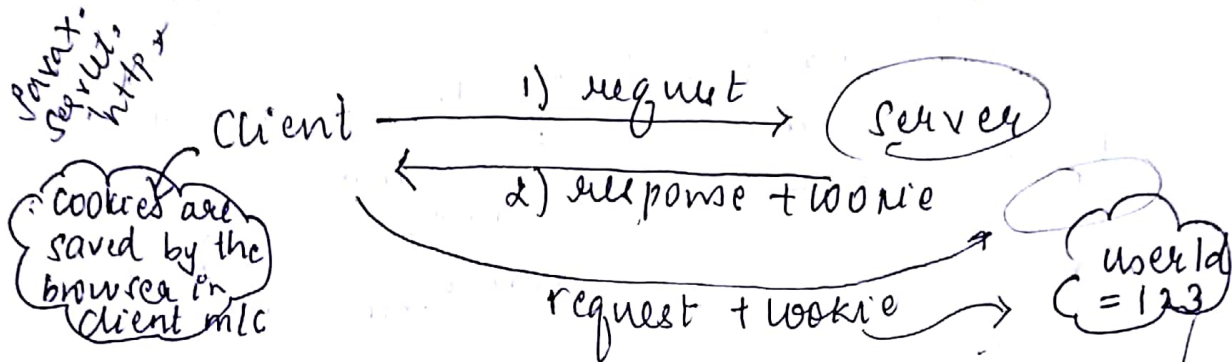 javax.
servlet.
http *
Client
1) request
server
2) response + cookie
cookies are
saved by the
browser in
client m/c
request + cookie
userId
= 123